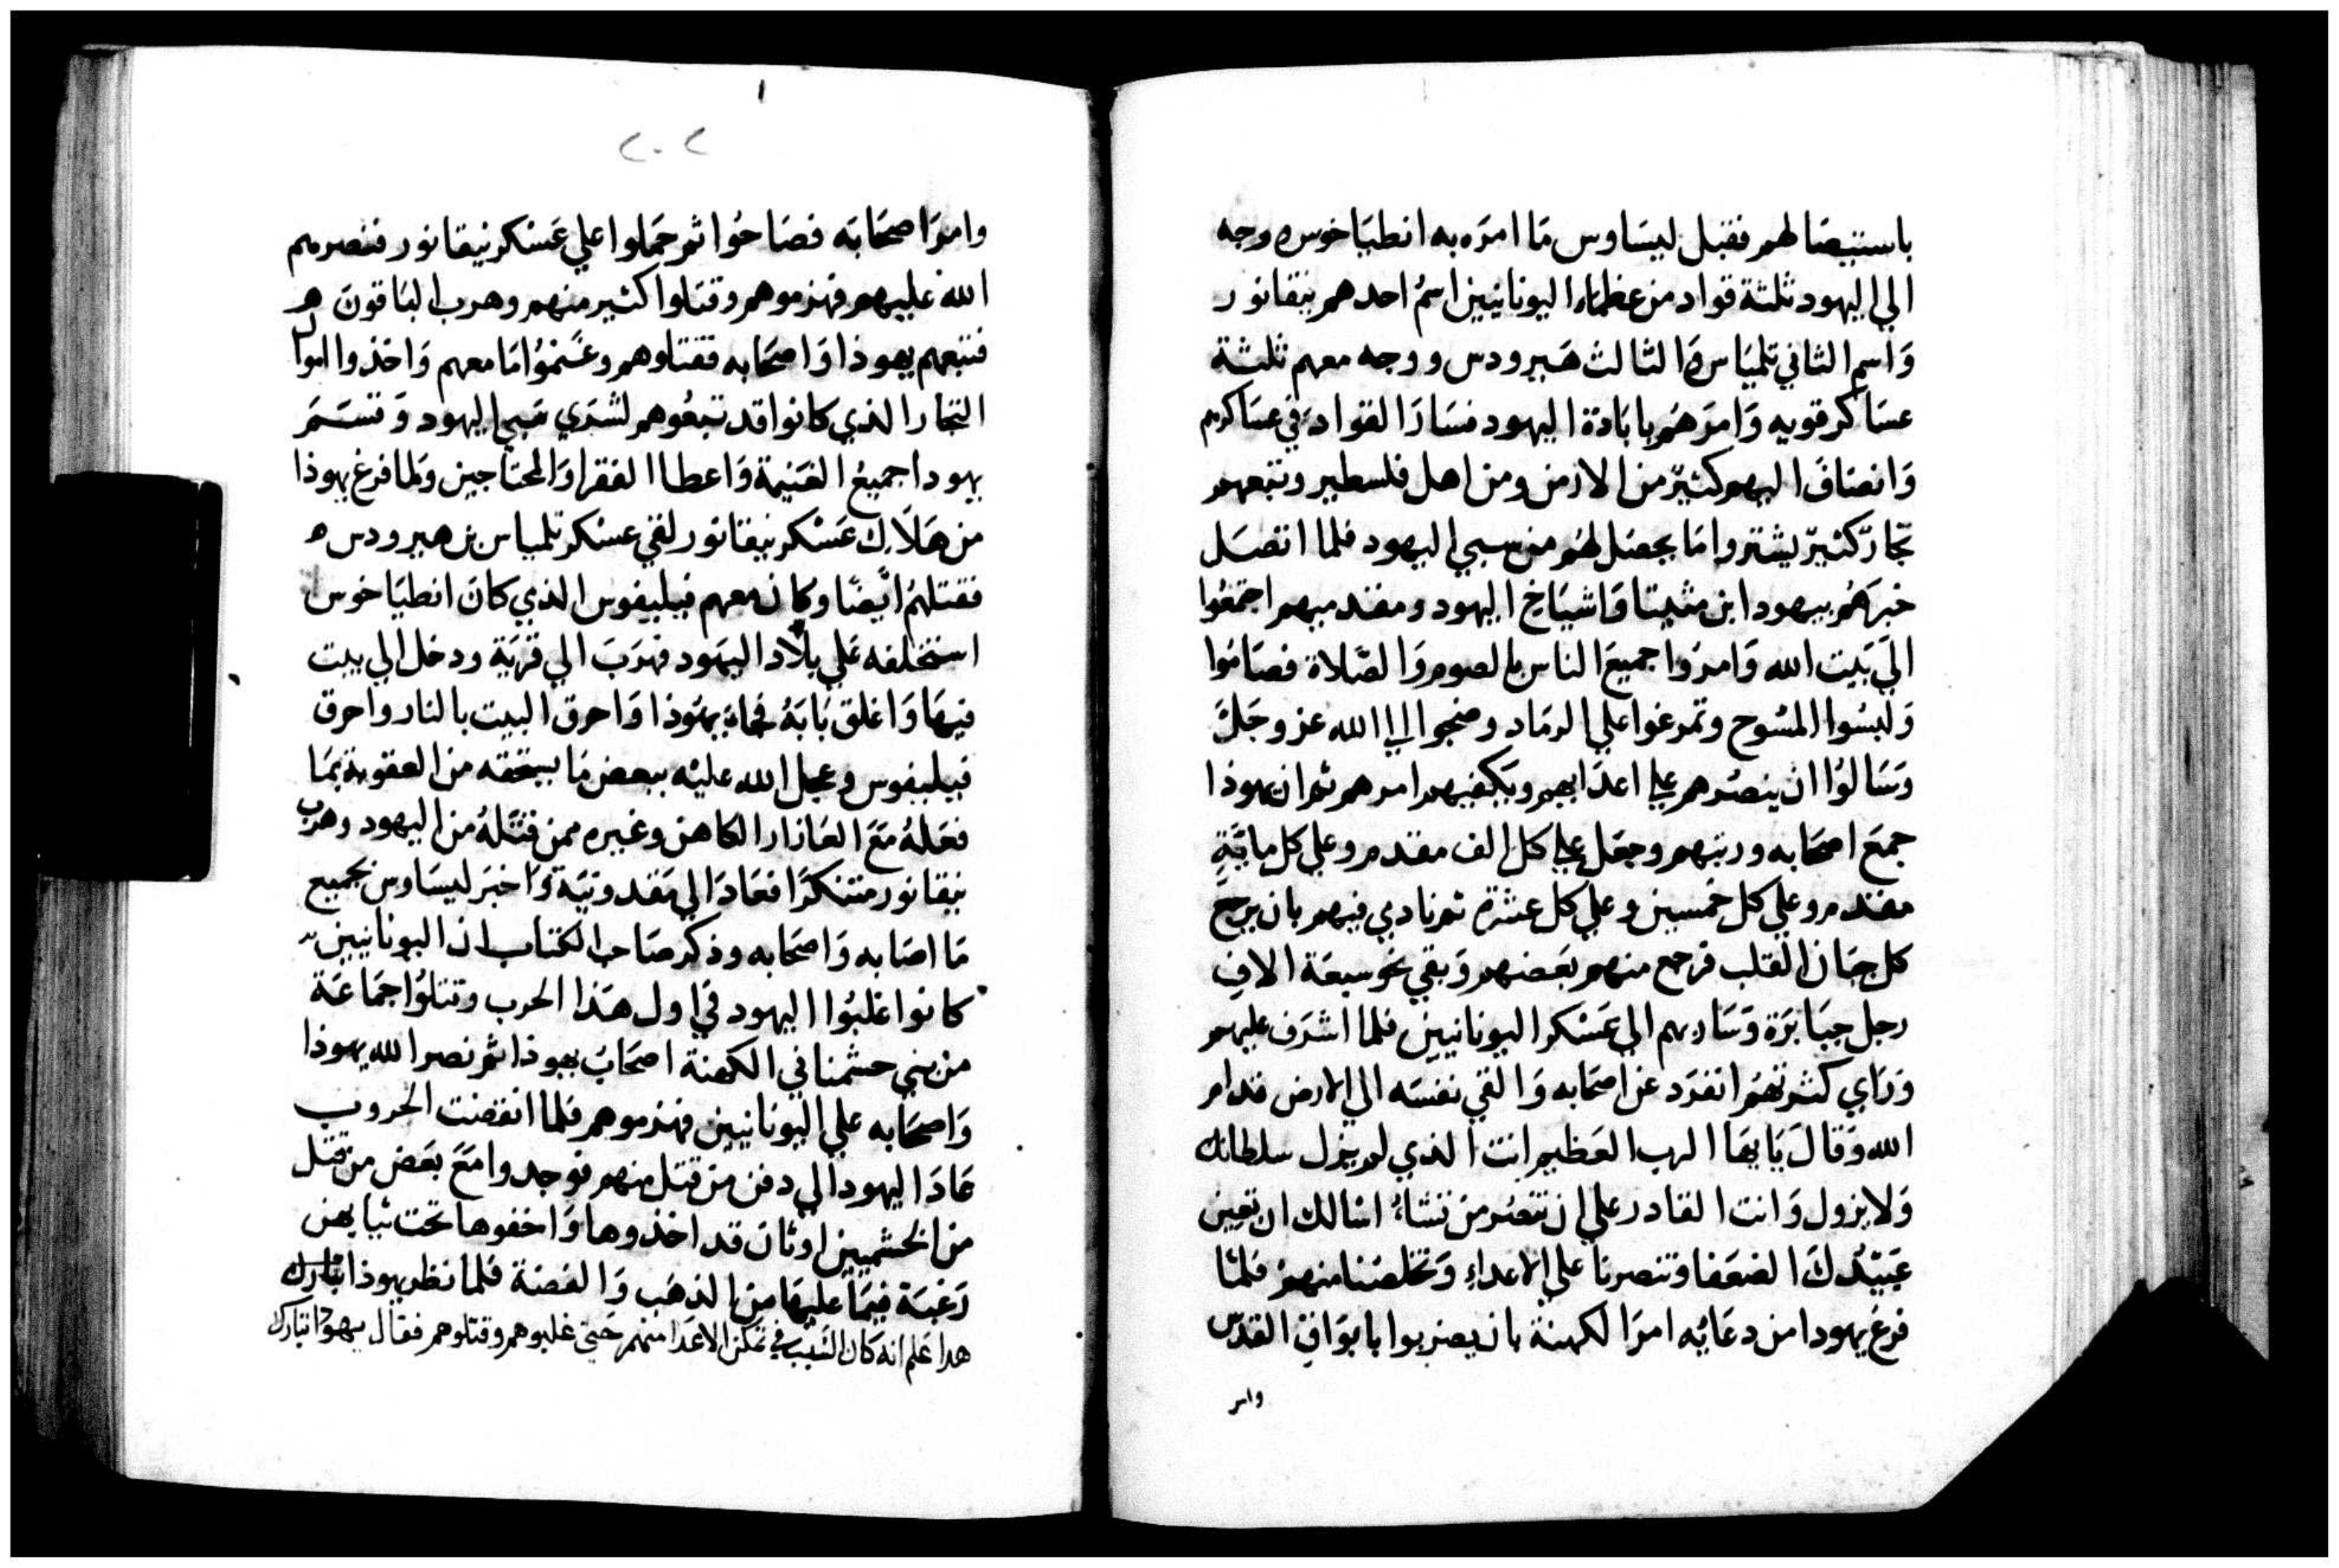 باستيصالهم فقبل ليساوس ما امره به انطياخوس ووجه
الي اليهود ثلثة قواد من عظماء اليونانيين اسم احدهم نيقانور
واسم الثاني تلمياس والثالث هيرودس ووجه معهم ثلثة
عساكر قويه وامرهم بابادة اليهود فسار القواد في عساكرهم
وانضاف اليهم كثير من الارمن ومن اهل فلسطين وتبعهم
تجار كثير يشتروا ما يحصل لهم من سبي اليهود فلما اتصل
خبرهم بيهودا ابن متيتا واشياخ اليهود ومقدميهم اجتمعوا
الي بيت الله وامروا جميع الناس بالصوم والصلاة فصاموا
ولبسوا المسوح وتمرغوا علي الرماد وضجوا الي الله عز وجل
وسالوا ان ينصرهم علي اعدايهم ويكفيهم امرهم ثم ان يهوذا
جمع اصحابه ورتبهم وجعل علي كل الف مقدم وعلي كل ماية
مقدم وعلي كل خمسين وعلي كل عشرة ثم نادي فيهم بان يرجع
كل جبان القلب فرجع منهم بعضهم وبقي نحو سبعة الاف
رجل جبابرة وسار بهم الي عسكر اليونانيين فلما اشرف عليهم
وراي كثرتهم انفرد عن اصحابه والقي نفسه الي الارض قدام
الله وقال يايها الرب العظيم انت الذي لم يزل سلطانك
ولا يزول وانت القادر علي ان تنصر من تشاء اسالك ان تعين
عبيدك الضعفا وتنصرنا علي الاعداء وتخلصنا منهم فلما
فرغ يهودا من دعايه امر الكهنة بان يضربوا بابواق القدس
وامر
٢٠٢
وامر اصحابه فصاحوا ثم حملوا علي عسكر نيقانور فنصرهم
الله عليهم فهزموهم وقتلوا كثير منهم وهرب الباقون
فتبعهم يهوذا واصحابه فقتلوهم وغنموا ما معهم واخذوا اموال
التجار الذي كانوا قد تبعوهم لشري سبي اليهود وقسم
يهودا جميع الغنيمة واعطا الفقرا والمحتاجين ولما فرغ يهوذا
من هلاك عسكر نيقانور لقي عسكر تلمياس بن هيرودس
فقتلهم ايضا وكان معهم فيليفوس الذي كان انطياخوس
استخلفه علي بلاد اليهود فهرب الي قرية ودخل الي بيت
فيها واغلق بابه فجاء يهوذا واحرق البيت بالنار واحرق
فيليفوس وعجل الله عليه ببعض ما يستحقه من العقوبة بما
فعله مع العازار الكاهن وغيره ممن قتله من اليهود وهرب
نيقانور متنكرا فعاد الي مقدونية واخبر ليساوس بجميع
ما اصابه واصحابه وذكر صاحب الكتاب ان اليونانيين
كانوا غلبوا اليهود في اول هذا الحرب وقتلوا جماعة
من بني حشمناي الكهنة اصحاب يهوذا ثم نصر الله يهوذا
واصحابه علي اليونانيين فهزموهم فلما انقضت الحروب
عاد اليهود الي دفن من قتل منهم فوجدوا مع بعض من قتل
من الحشميين اوثان قد اخذوها واخفوها تحت ثيابهم
رغبة فيما عليها من الذهب والفضة فلما نظر يهوذا تبارك
هدا علم انه كان السبب في تمكن الاعدا منهم حتي غلبوهم وقتلوهم فقال يهودا تبارك